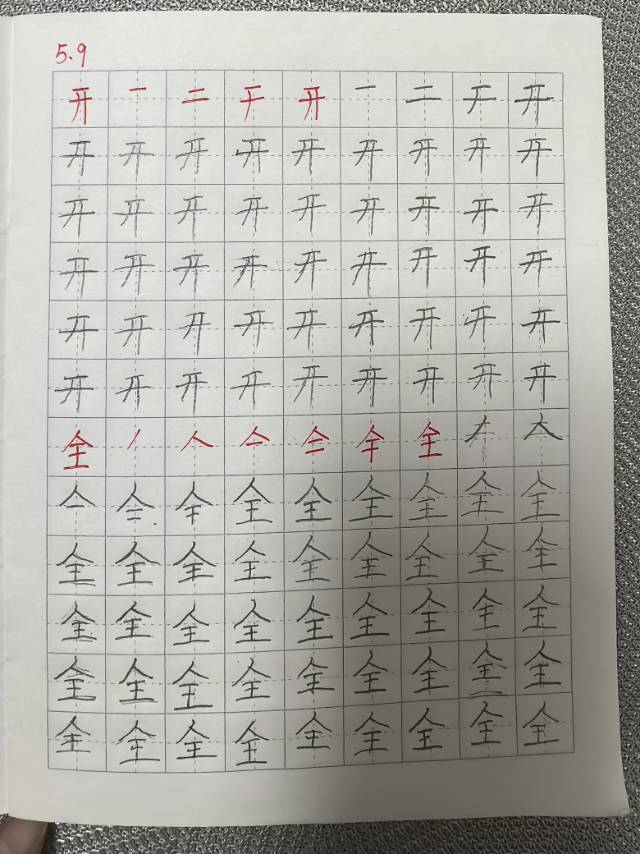 5.9
开 一 二 于 开 一 二 于 开
开 开 开 开 开 开 开 开 开
开 开 开 开 开 开 开 开 开
开 开 开 开 开 开 开 开 开
开 开 开 开 开 开 开 开 开
开 开 开 开 开 开 开 开 开
全 丿 人 亼 仝 全
全 全 全 全 全 全
全 全 全 全 全 全 全 全 全
全 全 全 全 全 全 全 全 全
全 全 全 全 全 全 全 全 全
全 全 全 全 全 全 全 全 全